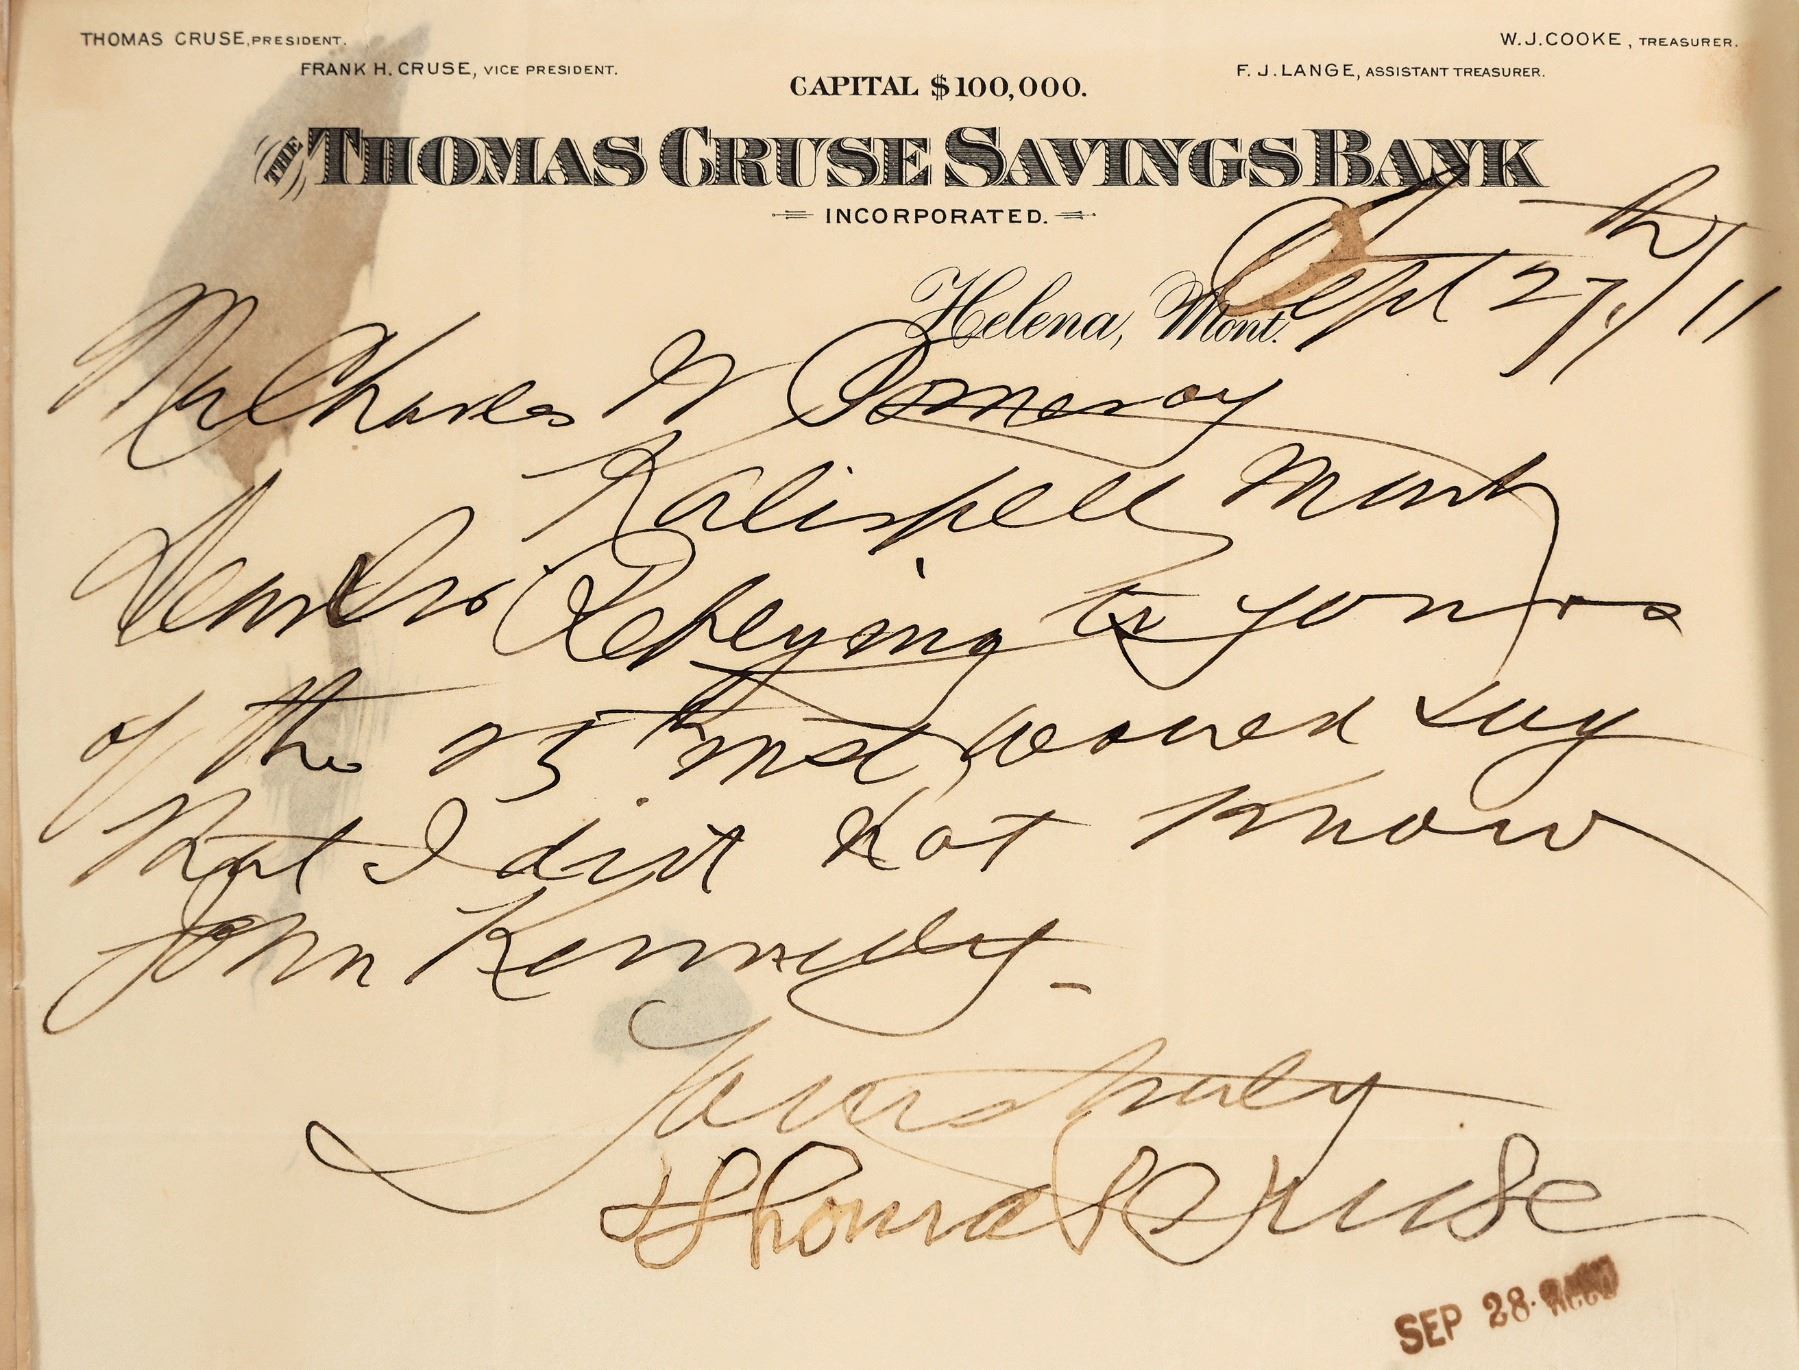 THOMAS CRUSE, PRESIDENT.
FRANK H. CRUSE, VICE PRESIDENT.
W. J. COOKE, TREASURER.
F. J. LANGE, ASSISTANT TREASURER.
CAPITAL $100,000.
THE THOMAS CRUSE SAVINGS BANK
INCORPORATED.
Helena, Mont. Sept 27th, / 11
Mr Charles W Pomeroy
Kalispell Mont
Dear Sir Replying to yours
of the 25th inst would say
that I did not know
John Kennedy -
Yours truly
Thomas Cruse
SEP 28. RECD